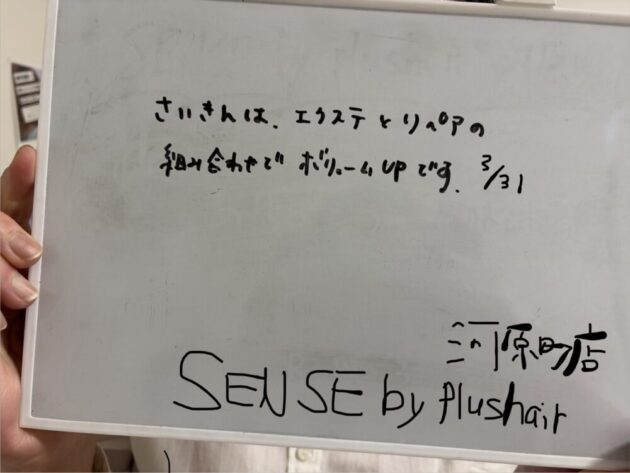 さいきんは、エクステとリペアの
組み合わせで ボリュームUPです。3/31
河原町店
SENSE by plushair